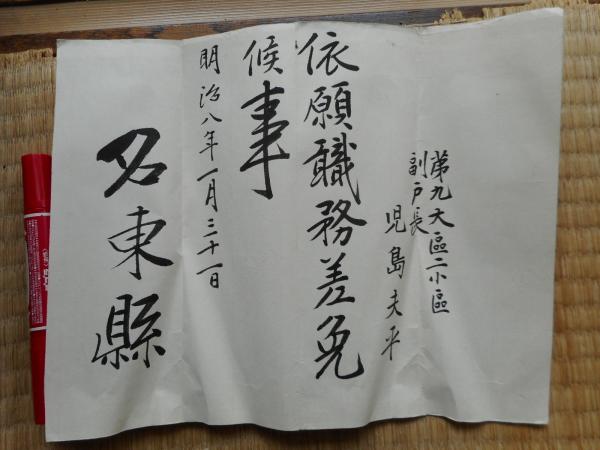 第九大區二小區
副戸長
児島夫平
依願職務差免
候事
明治八年一月三十一日
名東縣